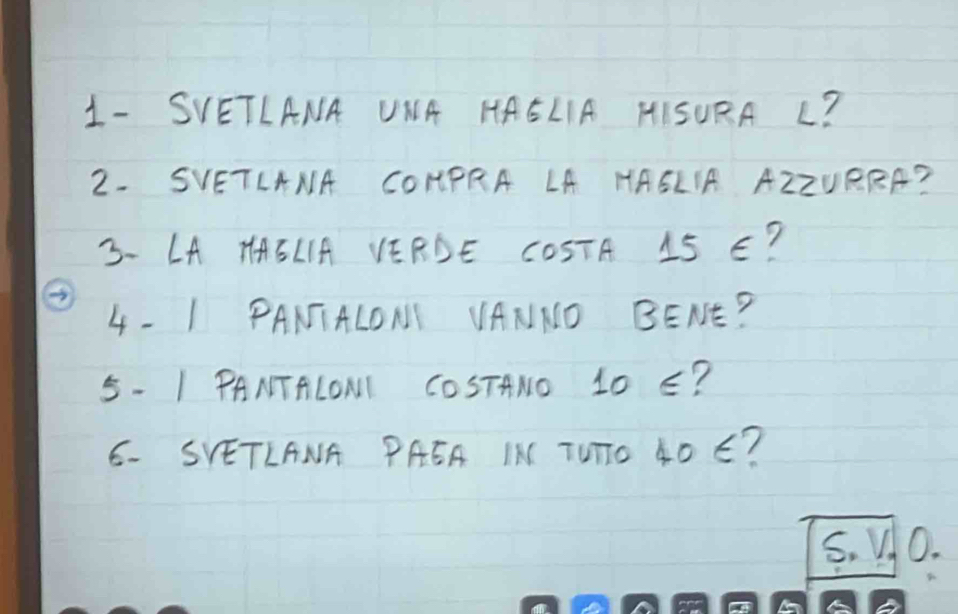 1- SVETLANA UNA MAGLIA MISURA L?
2- SVETLANA COMPRA LA MAGLIA AZZURRA?
3- LA MAGLIA VERDE COSTA 15 €?
4- I PANTALONI VANNO BENE?
5- I PANTALONI COSTANO 10 €?
6- SVETLANA PAGA IN TUTTO 40 €?
S. V. O.